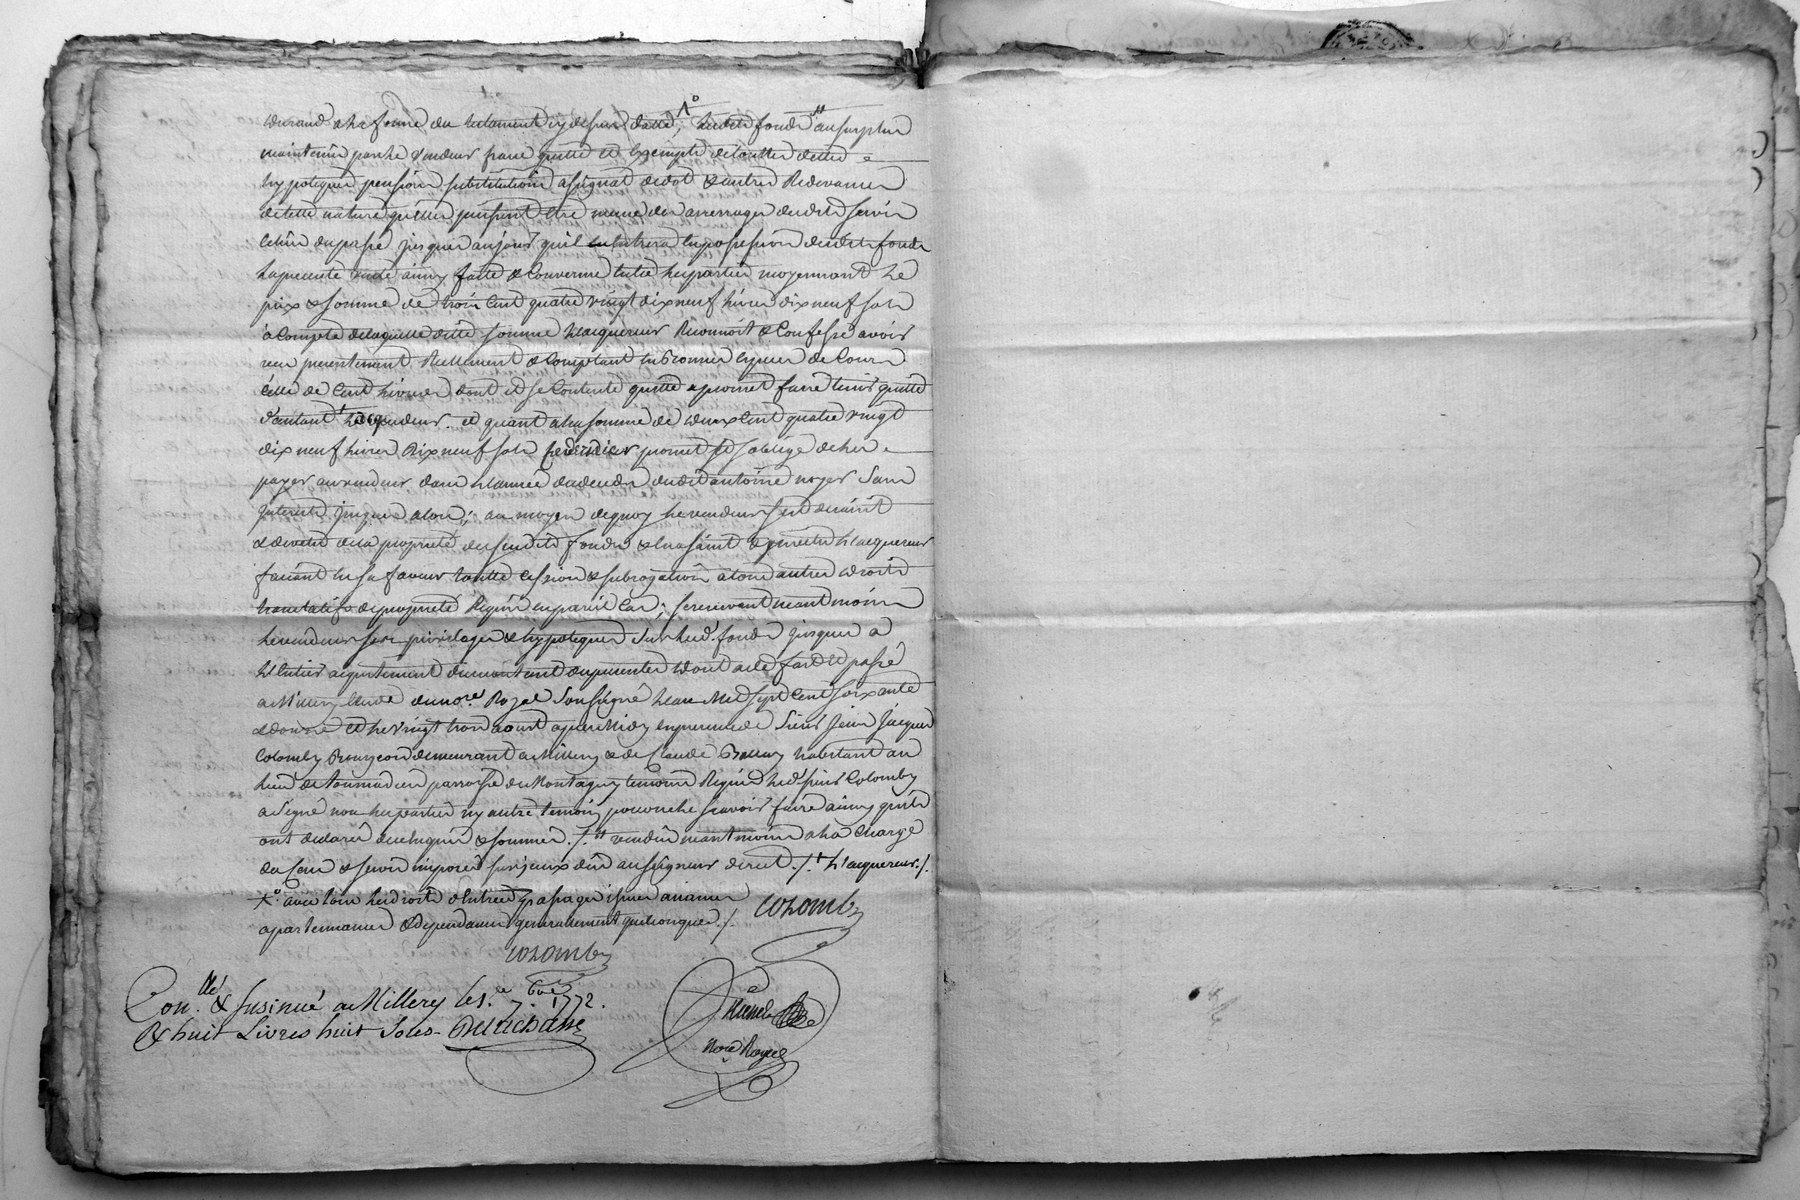 Durand & la forme du testament cy dessus datté, 1° lesdits fonds # au surplus
maintenus par le vendeur franc quitte et exempts de toutes dettes
hypoteques pensions substitution assignat de dot & autres Redevances
de telle nature qu'elles puissent etre meme des arrerages desdits servis
celui du passé jusques au jour qu'il en entrera en possession desdits fonds
la presente vente ainsy faitte & convenue entre les parties moyennant le
prix & somme de trois cent quatre vingt dix neuf livres dix neuf sols
à compte de laquelle ditte somme l'acquereur Reconnoit & confesse avoir
reçu presentement Reellement & comptant en bonnes especes de cours
celle de cent livres dont il se contente quitte & promet faire tenir quitte
d'autant le vendeur. et quant a la somme de deux cent quatre vingt
dix neuf livres dix neuf sols promet et s'oblige de les
payer au vendeur dans l'année du deces dudit antoine sans
interets jusques alors; au moyen de quoy le vendeur s'est demis
& devetu de la propriété desdits fonds & en a saisi & investi l'acquereur
faisant en sa faveur toutte cession & subrogation à tous autres droits
translatifs de propriété Requis en pareil cas; se reservant neantmoins
le vendeur ses privileges & hypoteques sur lesd. fonds jusques a
l'entier acquittement du montant des presentes Dont acte fait et passé
a Millery Etude du no.re Royal soussigné l'an Mil sept cent soixante
& douze et le vingt trois aoust apres Midy en presence de Sieur Jean Jacques
Colomby Bourgeois demeurant a Millery & de Claude habitant au
lieu de parroisse de Montagny temoins Requis led. sieur Colomby
a signé non les parties ny autre temoin pour ne le sçavoir faire ainsy qu'ils
ont declaré de ce Requis & sommés ./. # vendus neantmoins a la charge
du Cens & servis imposés sur jceux dûs au seigneur direct ./. † l'acquereur ./.
X° avec tous les droits d'entrées passages aisances
apartenances & dependances generallement quelconques ./. Colomby
Colomby
Con.llé & Insinué a Millery le 7.e 1772.
R. huit Livres huit sols.
No.re Royal